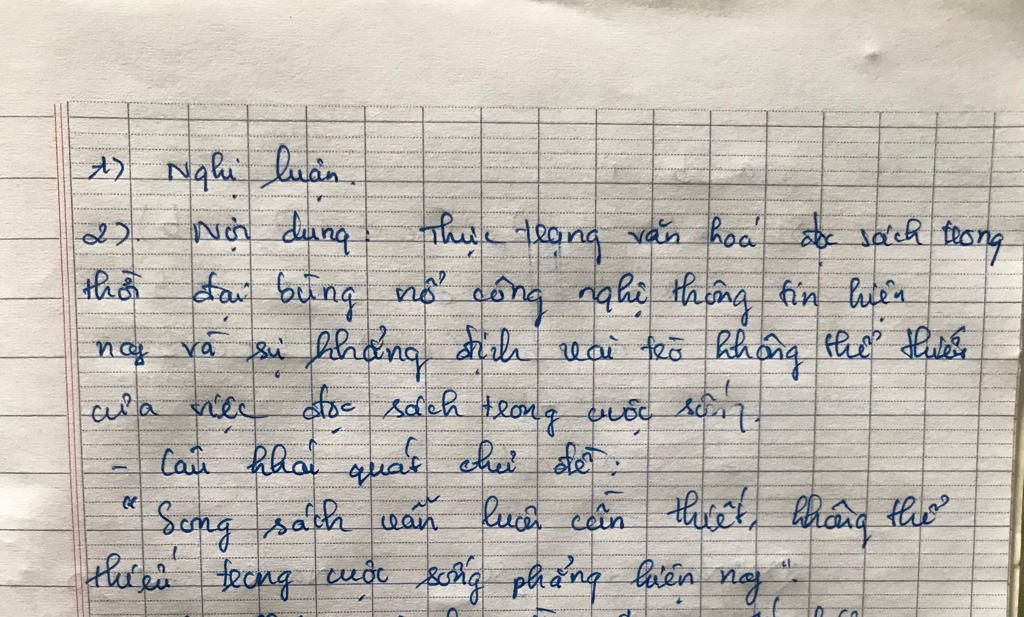 1) Nghị luận.
2). Nội dung: Thực trạng văn hoá đọc sách trong
thời đại bùng nổ công nghị thông tin hiện
nay và sự khẳng định vai trò không thể thiếu
của việc đọc sách trong cuộc sống.
- Câu khái quát chủ đề:
" Song sách vẫn luôn cần thiết, không thể
thiếu trong cuộc sống phẳng hiện nay".